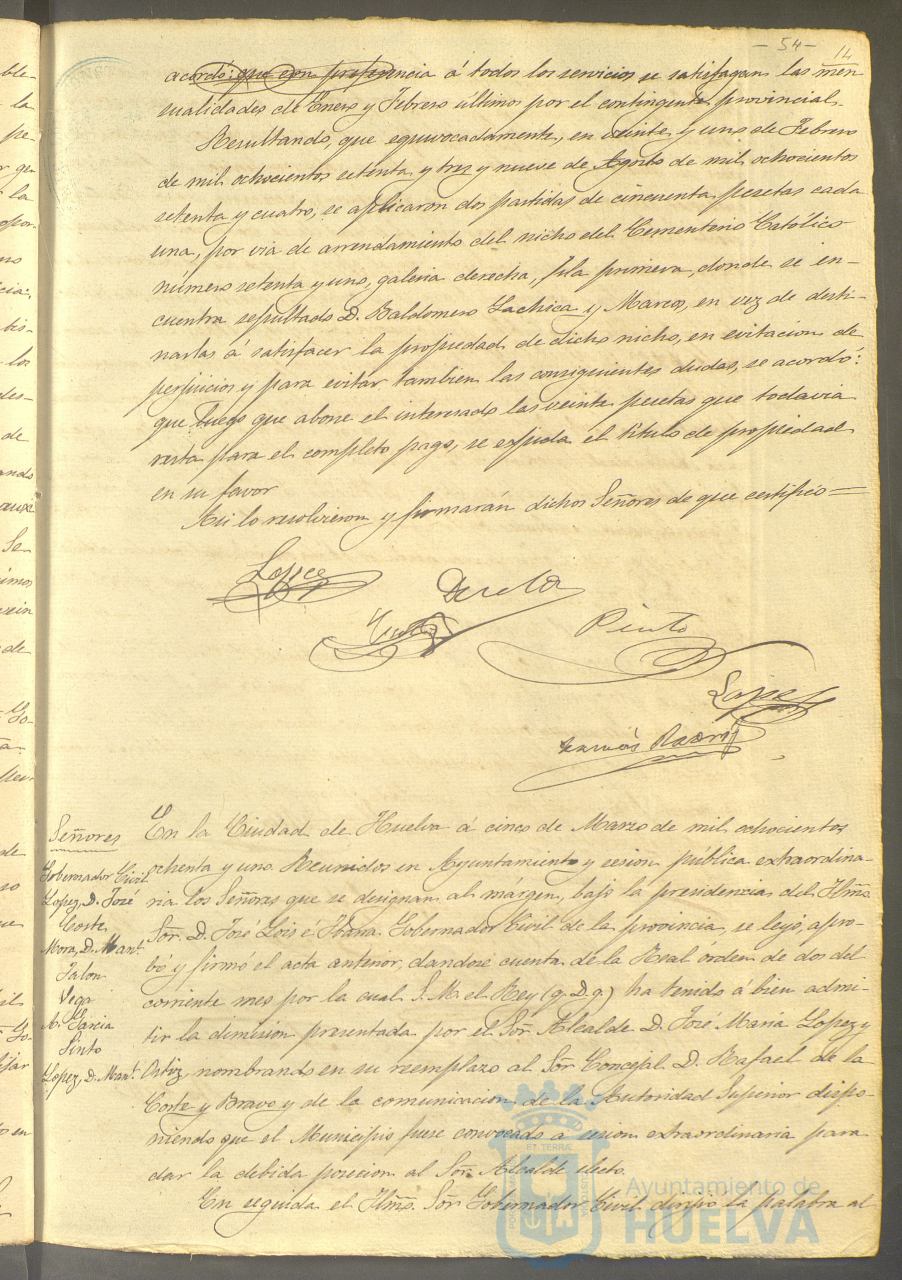 - 54 -
14
acordó: que con preferencia á todos los servicios se satisfagan las men
sualidades de Enero y Febrero últimos por el contingente provincial.
Resultando, que equivocadamente, en veinte y uno de Febrero
de mil ochocientos setenta y tres y nueve de Agosto de mil ochocientos
setenta y cuatro, se aplicaron dos partidas de cincuenta pesetas cada
una, por via de arrendamiento del nicho del Cementerio Católico
número setenta y uno, galeria derecha, fila primera, donde se en-
cuentra sepultado D. Baldomero Lachica y Marcos, en vez de desti-
narlas á satisfacer la propiedad de dicho nicho, en evitacion de
perjuicios y para evitar tambien las consiguientes dudas, se acordó:
que luego que abone el interesado las veinte pesetas que todavia
resta para el completo pago, se expida el título de propiedad
en su favor
Asi lo resolvieron y firmarán dichos Señores de que certifico=
Lopez
Pinto
Lopez
Señores
Gobernador Civil
Lopez, D. José
Corte
Mora, D. Manl.
Jalon
Vega
A. Garcia
Pinto
Lopez, D. Manl.
En la Ciudad de Huelva á cinco de Marzo de mil ochocientos
ochenta y uno. Reunidos en Ayuntamiento y sesion pública extraordina-
ria los Señores que se designan al márgen, bajo la presidencia del Iltmo.
Sor. D. José Lois é Ibarra. Gobernador Civil de la provincia, se leyó, apro-
bó y firmó el acta anterior, dandose cuenta de la Real órden de dos del
corriente mes por la cual S. M. el Rey (q. D. g.) ha tenido á bien admi-
tir la dimision presentada por el Sor. Alcalde D. José María Lopez y
Ortiz, nombrando en su reemplazo al Sor. Concejal D. Rafael de la
Corte y Bravo y de la comunicacion de la Autoridad Superior dispo-
niendo que el Municipio fuese convocado á sesion extraordinaria para
dar la debida posesion al Sor. Alcalde electo.
En seguida el Iltmo. Sor. Gobernador Civil dirijió la palabra al
Ayuntamiento de
HUELVA